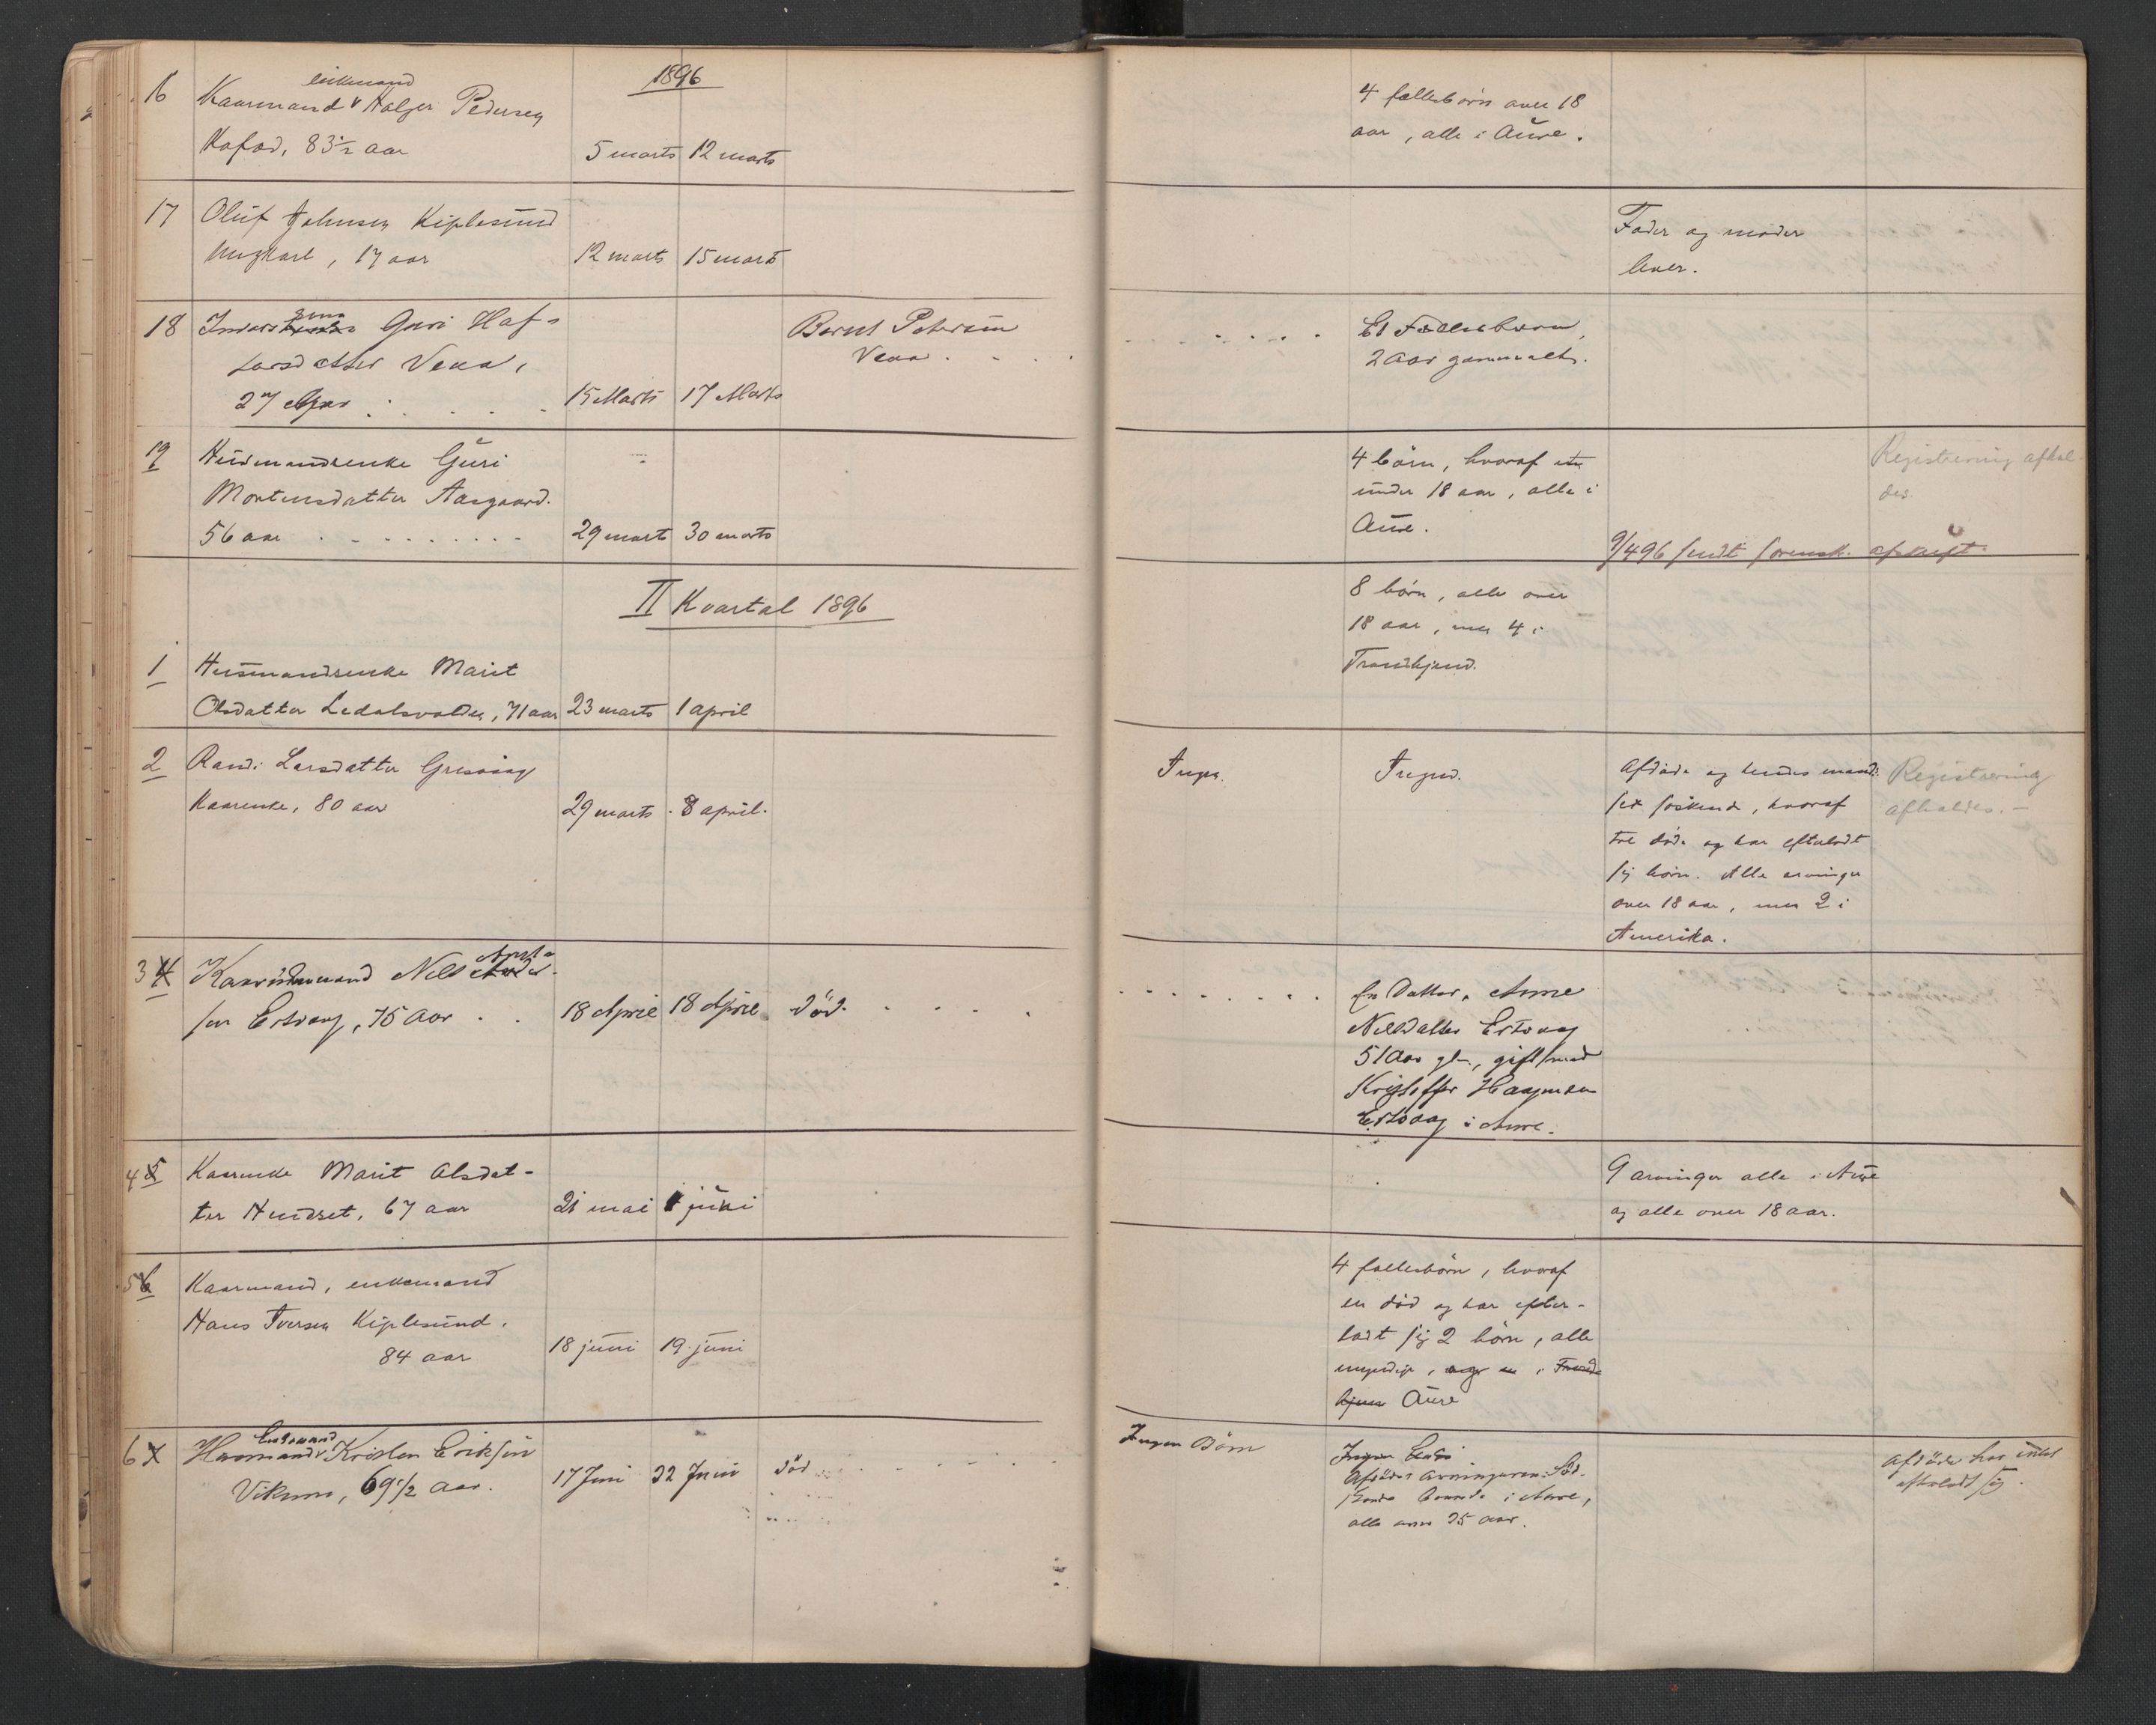 1896
16 Kaarmand v Holger Pedersen
enkemand
Kafod, 83 1/2 aar 5 marts 12 marts
4 fællesbørn over 18
aar, alle i Aure.
17 Oluf Johnsen Kiplesund
Ungkarl, 17 aar 12 marts 15 marts
Fader og moder
lever.
18 Guri Haf-
larsdatter
27 Aar 15 Marts 17 Marts
Bernt Petersen
Et Fællesbarn,
2 Aar gammalt.
19 Husmandsenke Guri
Mortensdatter Aasgaard.
56 aar 29 marts 30 marts
4 børn, hvoraf
under 18 aar, alle i
Aure.
9/4 96 sendt sorensk. afskrift.
Registrering afhol-
des.
II Kvartal 1896
1 Husmandsenke Marit
Olsdatter Ledalsvalden, 71 aar 23 marts 1 april
8 børn, alle over
18 aar, 4 i
Trondhjem.
2 Randi Larsdatter Gresvaag
Kaarenke, 80 aar 29 marts 8 april.
Ingen. Ingen.
Afdøde og hendes mand
søskende, hvoraf
tre døde og har efterladt
sig børn. Alle arvinger
over 18 aar, 2 i
Amerika.
Registrering
afholdes.
3 4 Nils
sen Ertvaag, 75 Aar 18 April 18 April død.
En Datter, Anne
Nilsdatter Ertvaag
51 Aar gl., gift med
Kristoffer Haagensen
Ertvaag i Aure.
4 5 Kaarenke Marit Olsdat-
ter Hendset, 67 aar 21 mai 1 juni
9 arvinger alle i Aure
og alle over 18 aar.
5 6 Kaarmand, enkemand
Hans Iversen Kiplesund.
84 aar 18 juni 19. juni
4 fællesbørn, hvoraf
en død og har efter-
ladt sig 2 børn, alle
myndige, i
Aure
6 Enkemand
Kristen Eriksen
Vikum, 69 1/2 Aar. 17 Juni 22 Juni død
Ingen Børn
Ingen
Afdødes Arvinger
i Aure,
alle over 25 aar.
Afdøde har intet
efterladt sig.